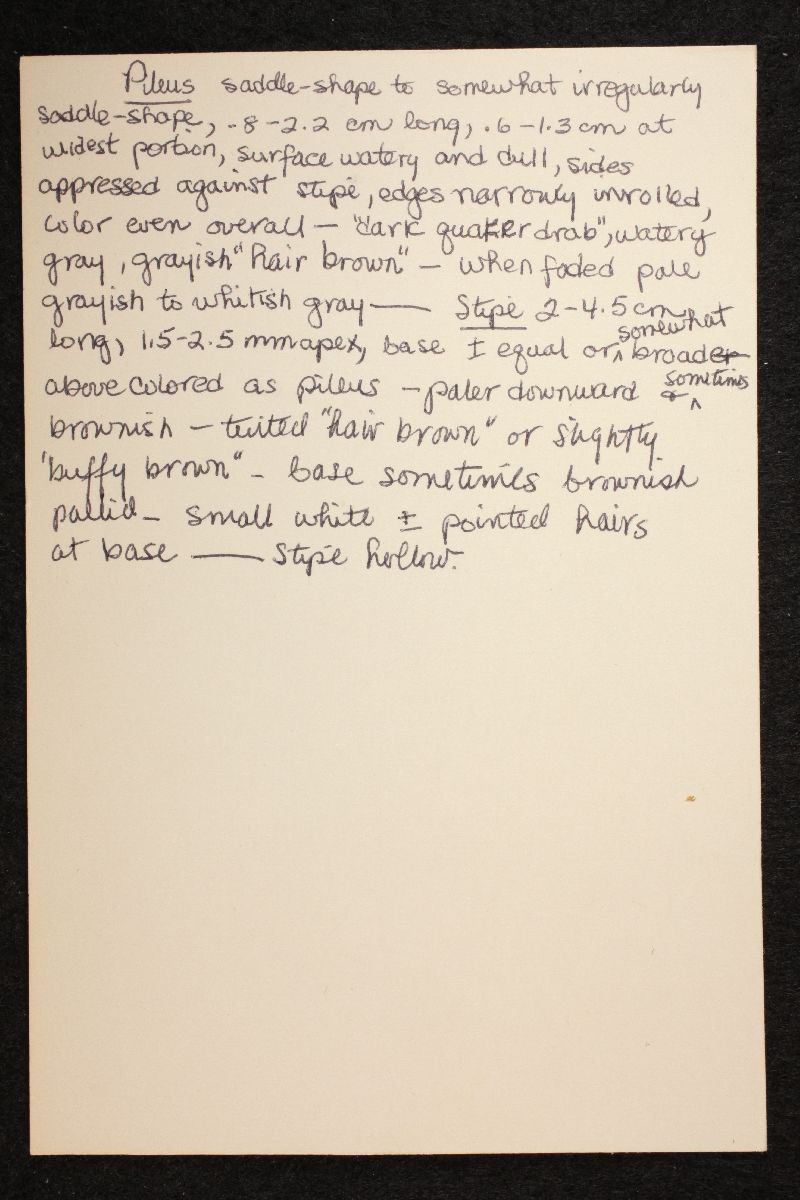 Pileus saddle-shape to somewhat irregularly
saddle-shape, .8-2.2 cm long, .6-1.3 cm at
widest portion, surface watery and dull, sides
appressed against stipe, edges narrowly inrolled,
color even overall — "dark quaker drab", watery
gray, grayish "hair brown" — when faded pale
grayish to whitish gray —— Stipe 2-4.5 cm
long, 1.5-2.5 mm apex, base ± equal or somewhat broader
above colored as pileus — paler downward or sometimes
brownish — tinted "hair brown" or slightly
"buffy brown" - base sometimes brownish
pallid - small white ± pointed hairs
at base —— Stipe hollow.